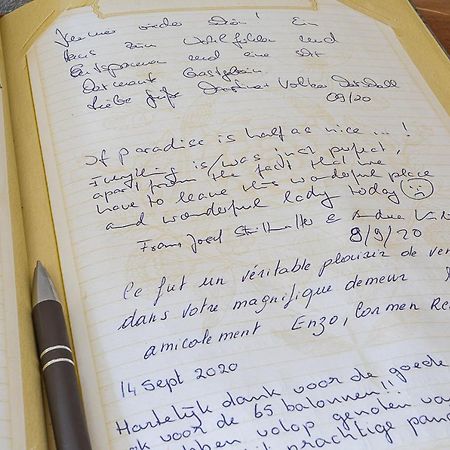 immer wieder schön! Ein
Haus zum Wohlfühlen und
Entspannen und eine
Gastgeberin
Liebe Grüße Volker
09/20
If paradise is half as nice ... !
Everything is/was just perfect,
apart from the fact that we
have to leave this wonderful place
and wonderful lady today
Franz Josef & Andrea
9/9/20
Ce fut un véritable plaisir de ven
dans votre magnifique demeur
amicalement Enzo, Carmen Re
14 Sept 2020
Hartelijk dank voor de goede
ok voor de 65 balonnen!!
bben volop genoten va
prachtige pan